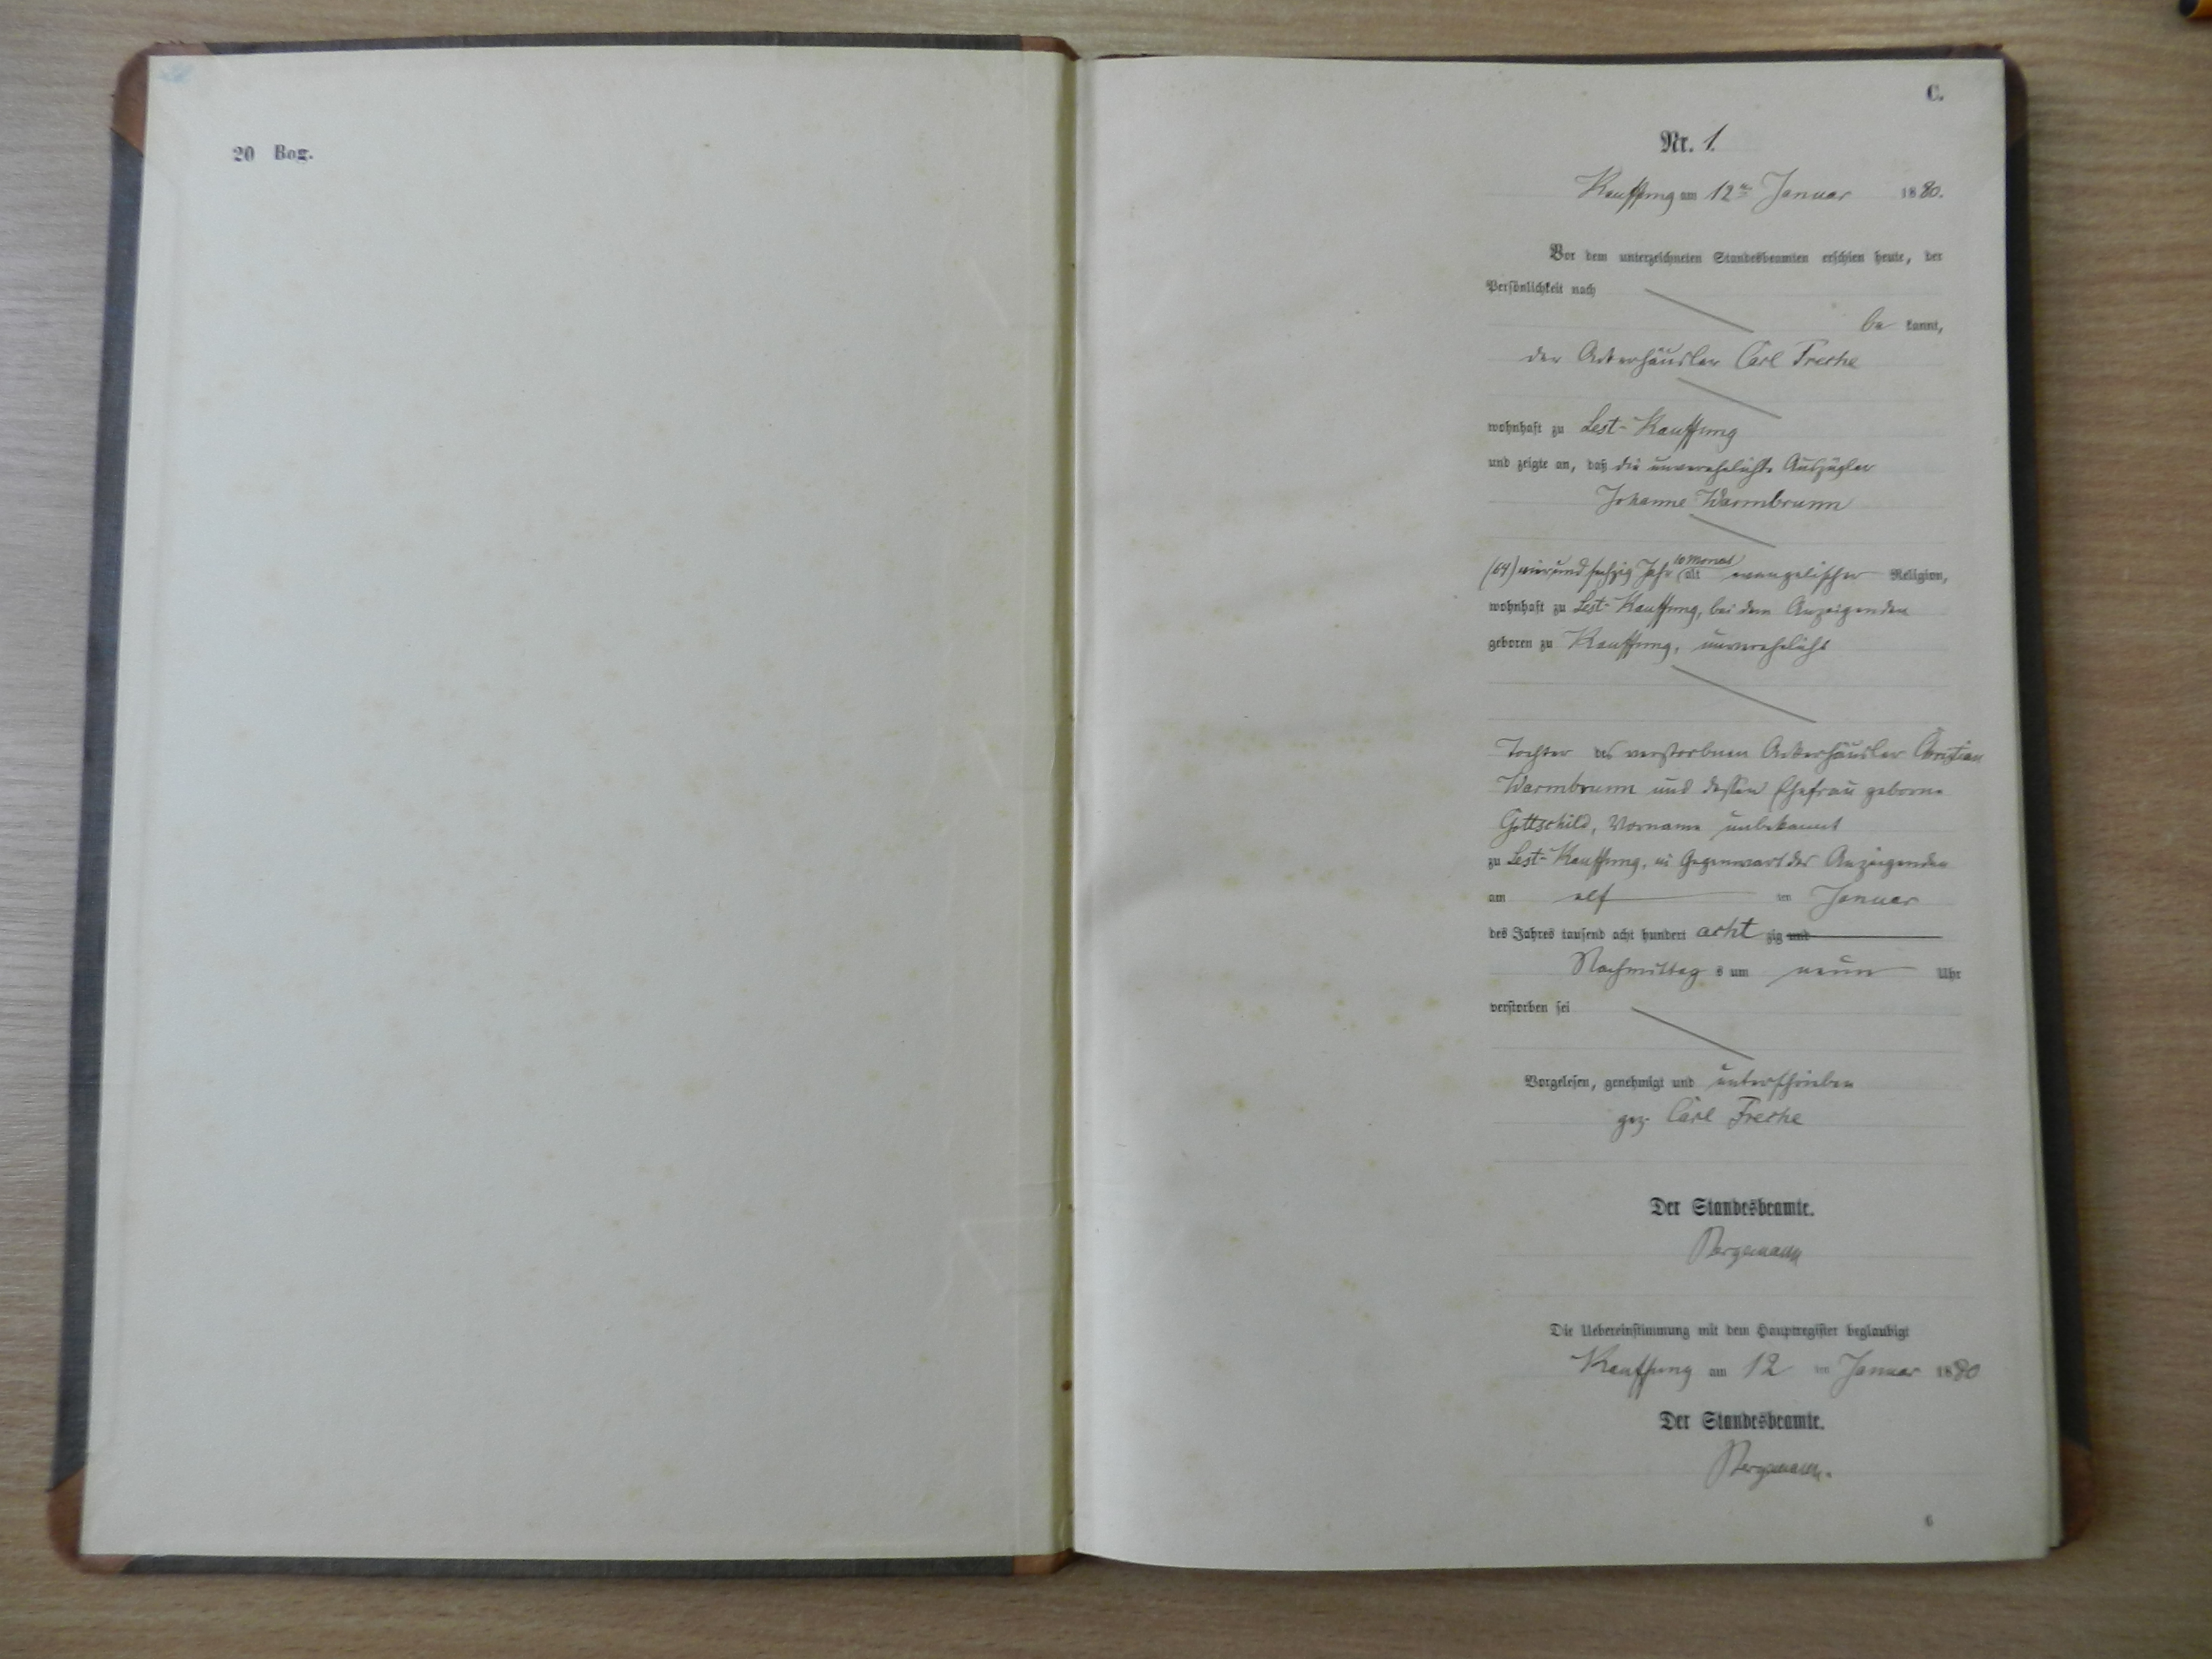 20 Bog.
C.
Nr. 1.
Kauffung am 12ten Januar 1880.
Vor dem unterzeichneten Standesbeamten erschien heute, der
Persönlichkeit nach
be kannt,
der Ackerhäusler Carl Fresche
wohnhaft zu Lest-Kauffung
und zeigte an, daß die unverehelichte Auszügler
Johanne Warmbrunn
(64) vier und sechzig Jahr 10 Monat alt evangelischer Religion,
wohnhaft zu Lest-Kauffung, bei dem Anzeigenden
geboren zu Kauffung, unverehelicht
Tochter des verstorbnen Ackerhäusler Christian
Warmbrunn und dessen Ehefrau geborne
Gottschild, Vorname unbekannt
zu Lest-Kauffung, in Gegenwart des Anzeigenden
am elf ten Januar
des Jahres tausend acht hundert acht zig und
Nachmittag s um neun Uhr
verstorben sei
Vorgelesen, genehmigt und unterschrieben
gez. Carl Fresche
Der Standesbeamte.
Bergmann
Die Uebereinstimmung mit dem Hauptregister beglaubigt
Kauffung am 12 ten Januar 1880
Der Standesbeamte.
Bergmann.
6